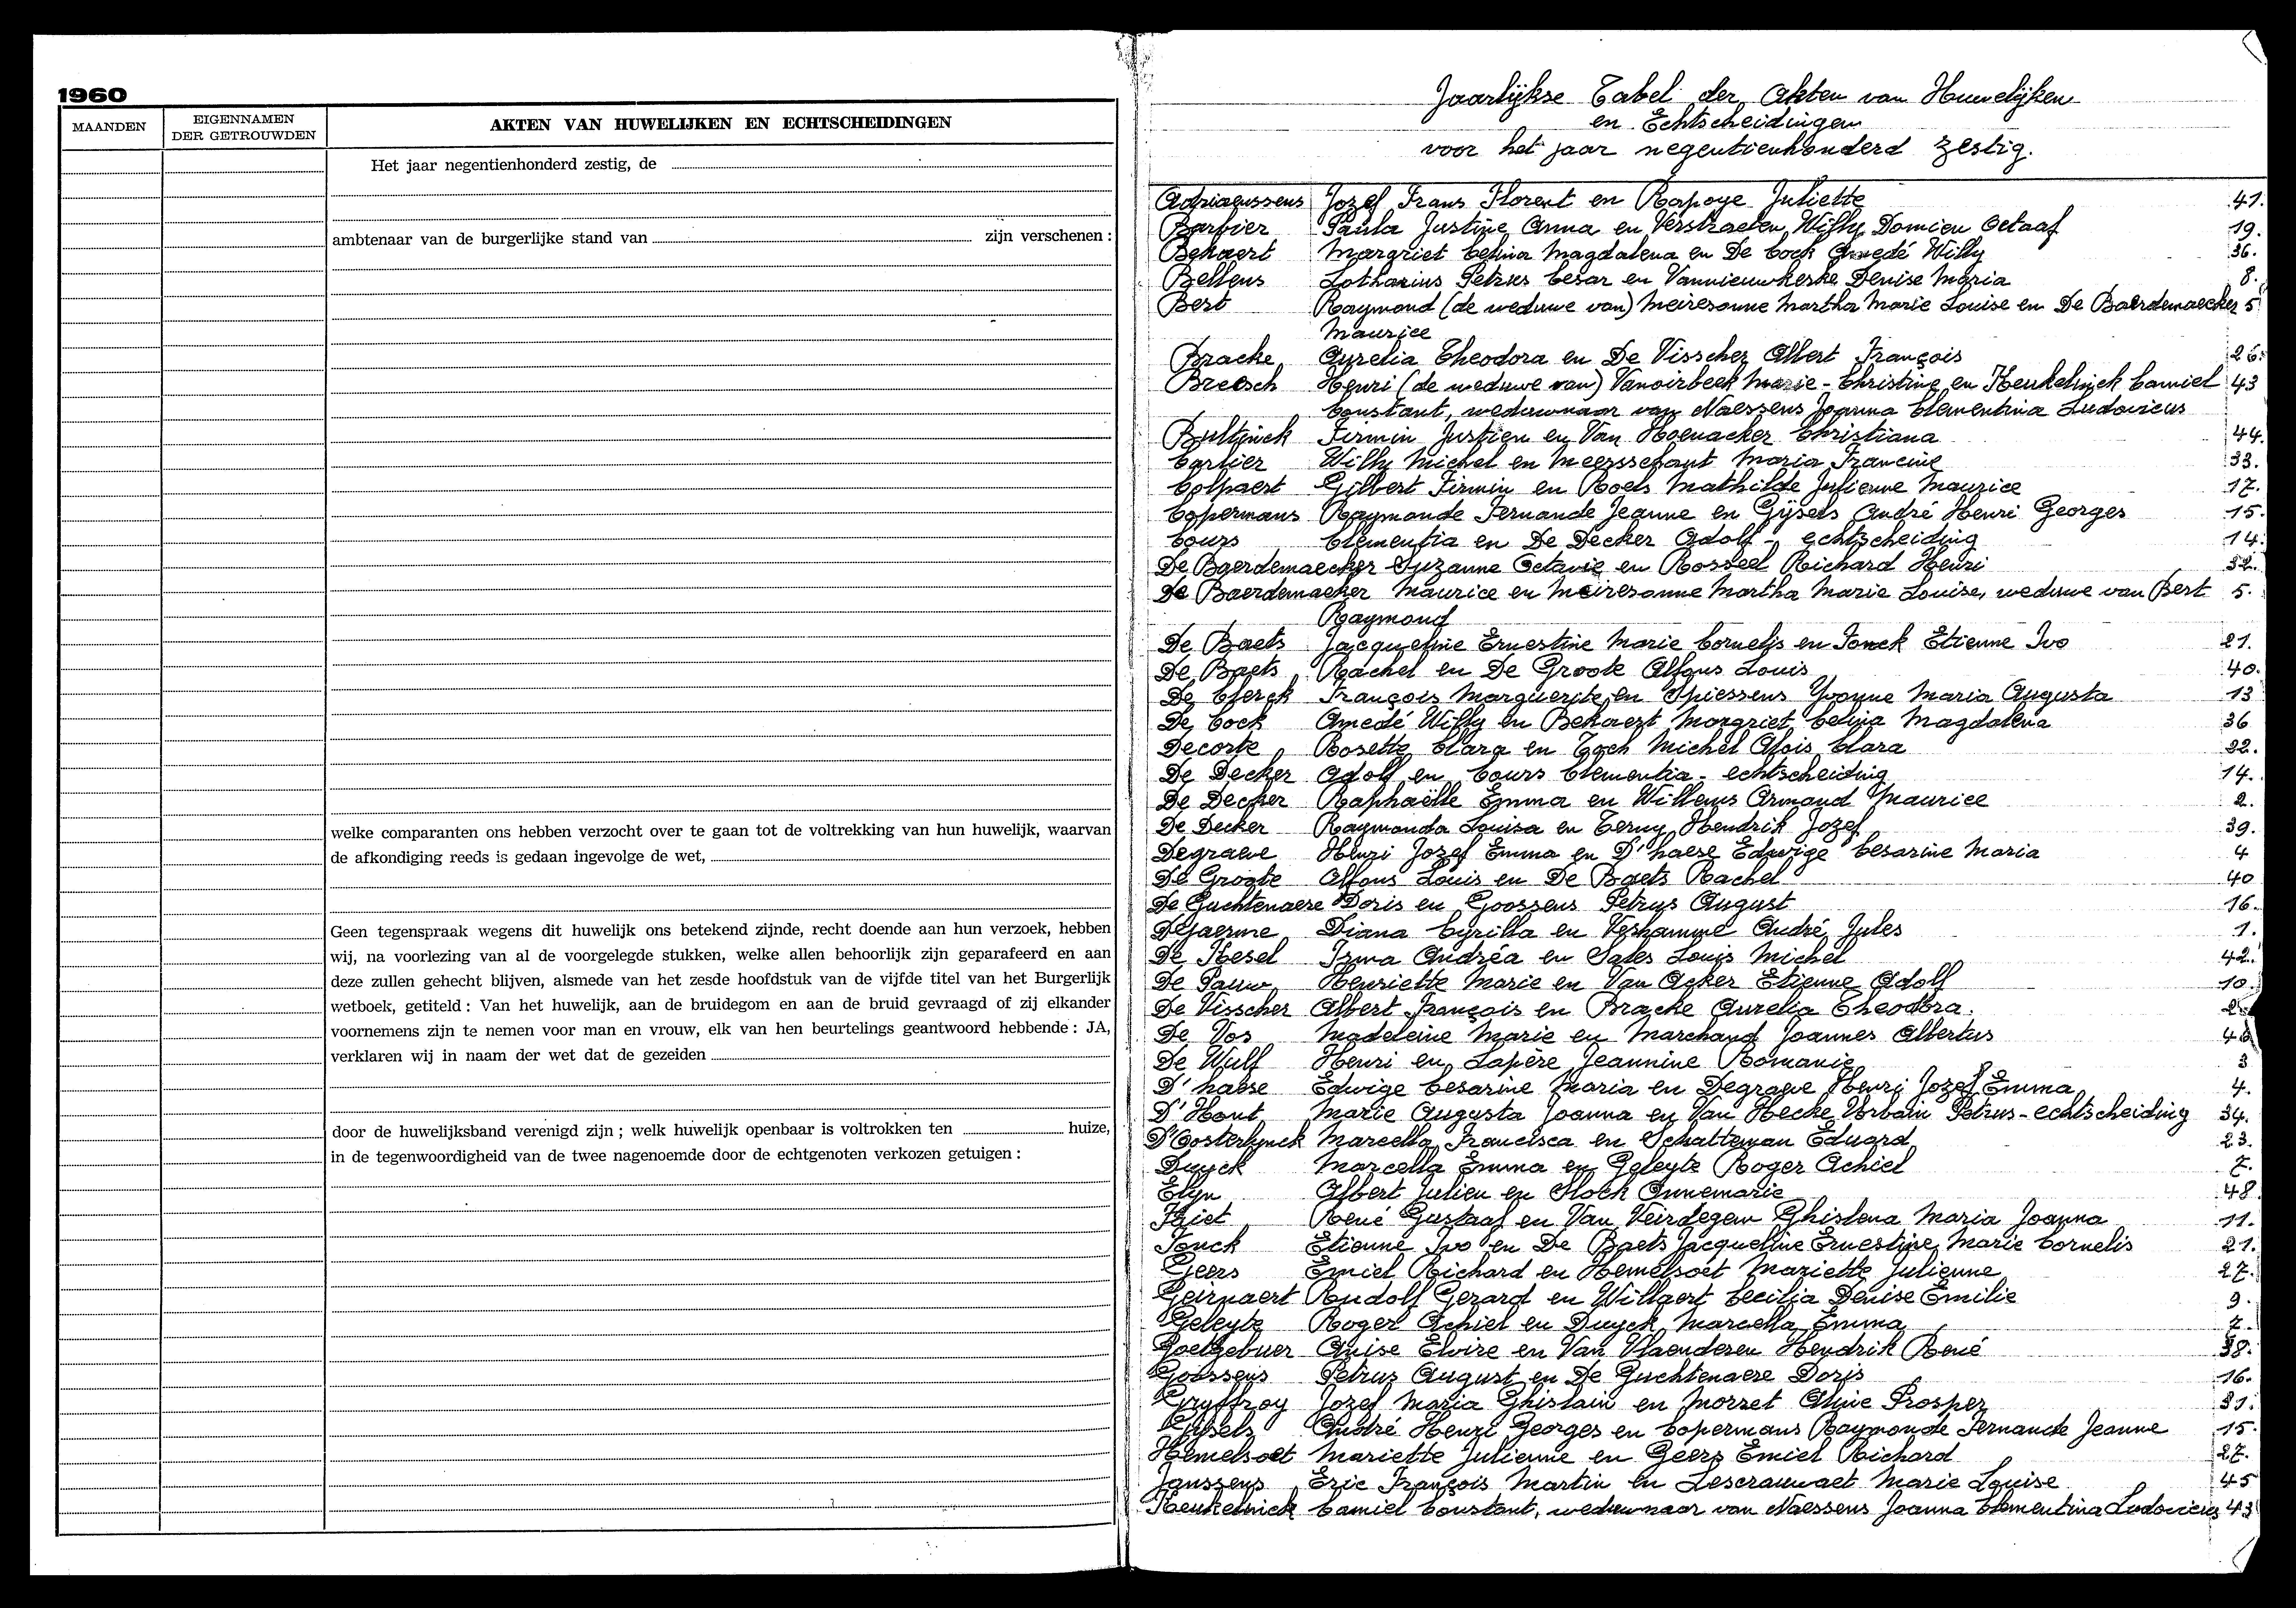 1960
MAANDEN
EIGENNAMEN
DER GETROUWDEN
AKTEN VAN HUWELIJKEN EN ECHTSCHEIDINGEN
Het jaar negentienhonderd zestig, de
ambtenaar van de burgerlijke stand van zijn verschenen :
welke comparanten ons hebben verzocht over te gaan tot de voltrekking van hun huwelijk, waarvan
de afkondiging reeds is gedaan ingevolge de wet,
Geen tegenspraak wegens dit huwelijk ons betekend zijnde, recht doende aan hun verzoek, hebben
wij, na voorlezing van al de voorgelegde stukken, welke allen behoorlijk zijn geparafeerd en aan
deze zullen gehecht blijven, alsmede van het zesde hoofdstuk van de vijfde titel van het Burgerlijk
wetboek, getiteld : Van het huwelijk, aan de bruidegom en aan de bruid gevraagd of zij elkander
voornemens zijn te nemen voor man en vrouw, elk van hen beurtelings geantwoord hebbende : JA,
verklaren wij in naam der wet dat de gezeiden
door de huwelijksband verenigd zijn ; welk huwelijk openbaar is voltrokken ten huize,
in de tegenwoordigheid van de twee nagenoemde door de echtgenoten verkozen getuigen :
Jaarlijkse Tabel der Akten van Huwelijken
en Echtscheidingen
voor het jaar negentienhonderd zestig.
Adriaenssens Jozef Frans Florent en Rapoye Juliette 41.
Barbier Paula Justine Anna en Verstraeten Willy Domien Octaaf 19.
Bekaert Margriet Celina Magdalena en De Cock Amedé Willy 36.
Bellens Lotharius Petrus Cesar en Vannieuwkerke Denise Maria 8.
Bert Raymond (de weduwe van) Meiresonne Martha Marie Louise en De Baerdemaecker 5
Maurice
Bracke Aurelia Theodora en De Visscher Albert François 26.
Breesch Henri (de weduwe van) Vanoirbeek Marie-Christine en Keukelinck Camiel 43
Constant, weduwnaar van Naessens Joanna Clementina Ludovicus
Bultinck Firmin Justien en Van Hoenacker Christiana 44.
Carlier Willy Michel en Meersschaut Maria Francine 33.
Colpaert Gilbert Firmin en Roels Mathilde Julienne Maurice 17.
Copermans Raymonde Fernande Jeanne en Gijsels André Henri Georges 15.
Cours Clementia en De Decker Adolf - echtscheiding 14.
De Baerdemaecker Suzanne Octavie en Rosseel Richard Henri 32.
De Baerdemaeker Maurice en Meiresonne Martha Marie Louise, weduwe van Bert 5.
Raymond
De Baets Jacqueline Ernestine Marie Cornelis en Fonck Etienne Ivo 21.
De Baets Rachel en De Groote Alfons Louis 40.
De Clerck François Marguerite en Spiessens Yvonne Maria Augusta 13
De Cock Amedé Willy en Bekaert Margriet Celina Magdalena 36
Decorte Rosette Clara en Toch Michel Alois Clara 22.
De Decker Adolf en Cours Clementia - echtscheiding 14.
De Decker Raphaëlle Emma en Willems Armand Maurice 2.
De Decker Raymonda Louisa en Terny Hendrik Jozef 39.
Degraeve Henri Jozef Emma en D'haese Edwige Cesarine Maria 4
De Groote Alfons Louis en De Baets Rachel 40
De Guchtenaere Doris en Goossens Petrus August 16.
Diana Cyrilla en Verhamme André Jules 1.
De Kesel Irma Andréa en Sales Louis Michel 42.
De Pauw Henriette Marie en Van Acker Etienne Adolf 10.
De Visscher Albert François en Bracke Aurelia Theodora.
De Vos Madeleine Marie en Marchand Joannes Albertus
De Wulf Henri en Lapère Jeannine Romanie 3
D'haese Edwige Cesarine Maria en Degraeve Henri Jozef Emma 4.
D'Hont Marie Augusta Joanna en Van Hecke Urbain Petrus - echtscheiding 34.
D'Oosterlynck Marcella Francisca en Schatteman Eduard 23.
Duyck Marcella Emma en Geleyte Roger Achiel 7.
Elyn Albert Julien en Hoek Annemarie 48.
Friet René Gustaaf en Van Veirdegem Ghislena Maria Joanna 11.
Fonck Etienne Ivo en De Baets Jacqueline Ernestine Marie Cornelis 21.
Geers Emiel Richard en Hemelsoet Mariette Julienne 27.
Geirnaert Rudolf Gerard en Willaert Cecilia Denise Emilie 9.
Geleyte Roger Achiel en Duyck Marcella Emma 7.
Goetgebuer Anise Elvire en Van Vlaenderen Hendrik René 38.
Goossens Petrus August en De Guchtenaere Doris 16.
Gryffroy Jozef Maria Ghislain en Morret Aline Prosper 31.
Gijsels André Henri Georges en Copermans Raymonde Fernande Jeanne 15.
Hemelsoet Mariette Julienne en Geers Emiel Richard 27.
Janssens Eric François Martin en Lescrauwaet Marie Louise 45
Keukelinck Camiel Constant, weduwnaar van Naessens Joanna Clementina Ludovicus 43